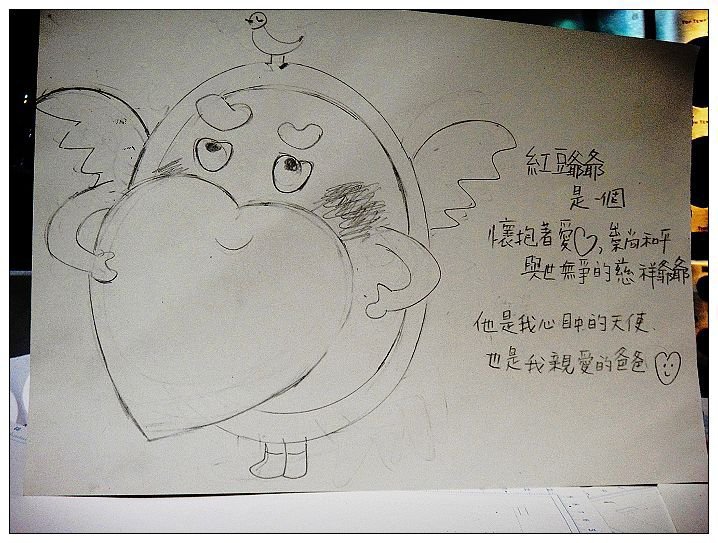 紅豆爺爺
是一個
懷抱著愛♡,崇尚和平
與世無爭的慈祥爺爺
他是我心目中的天使、
也是我親愛的爸爸